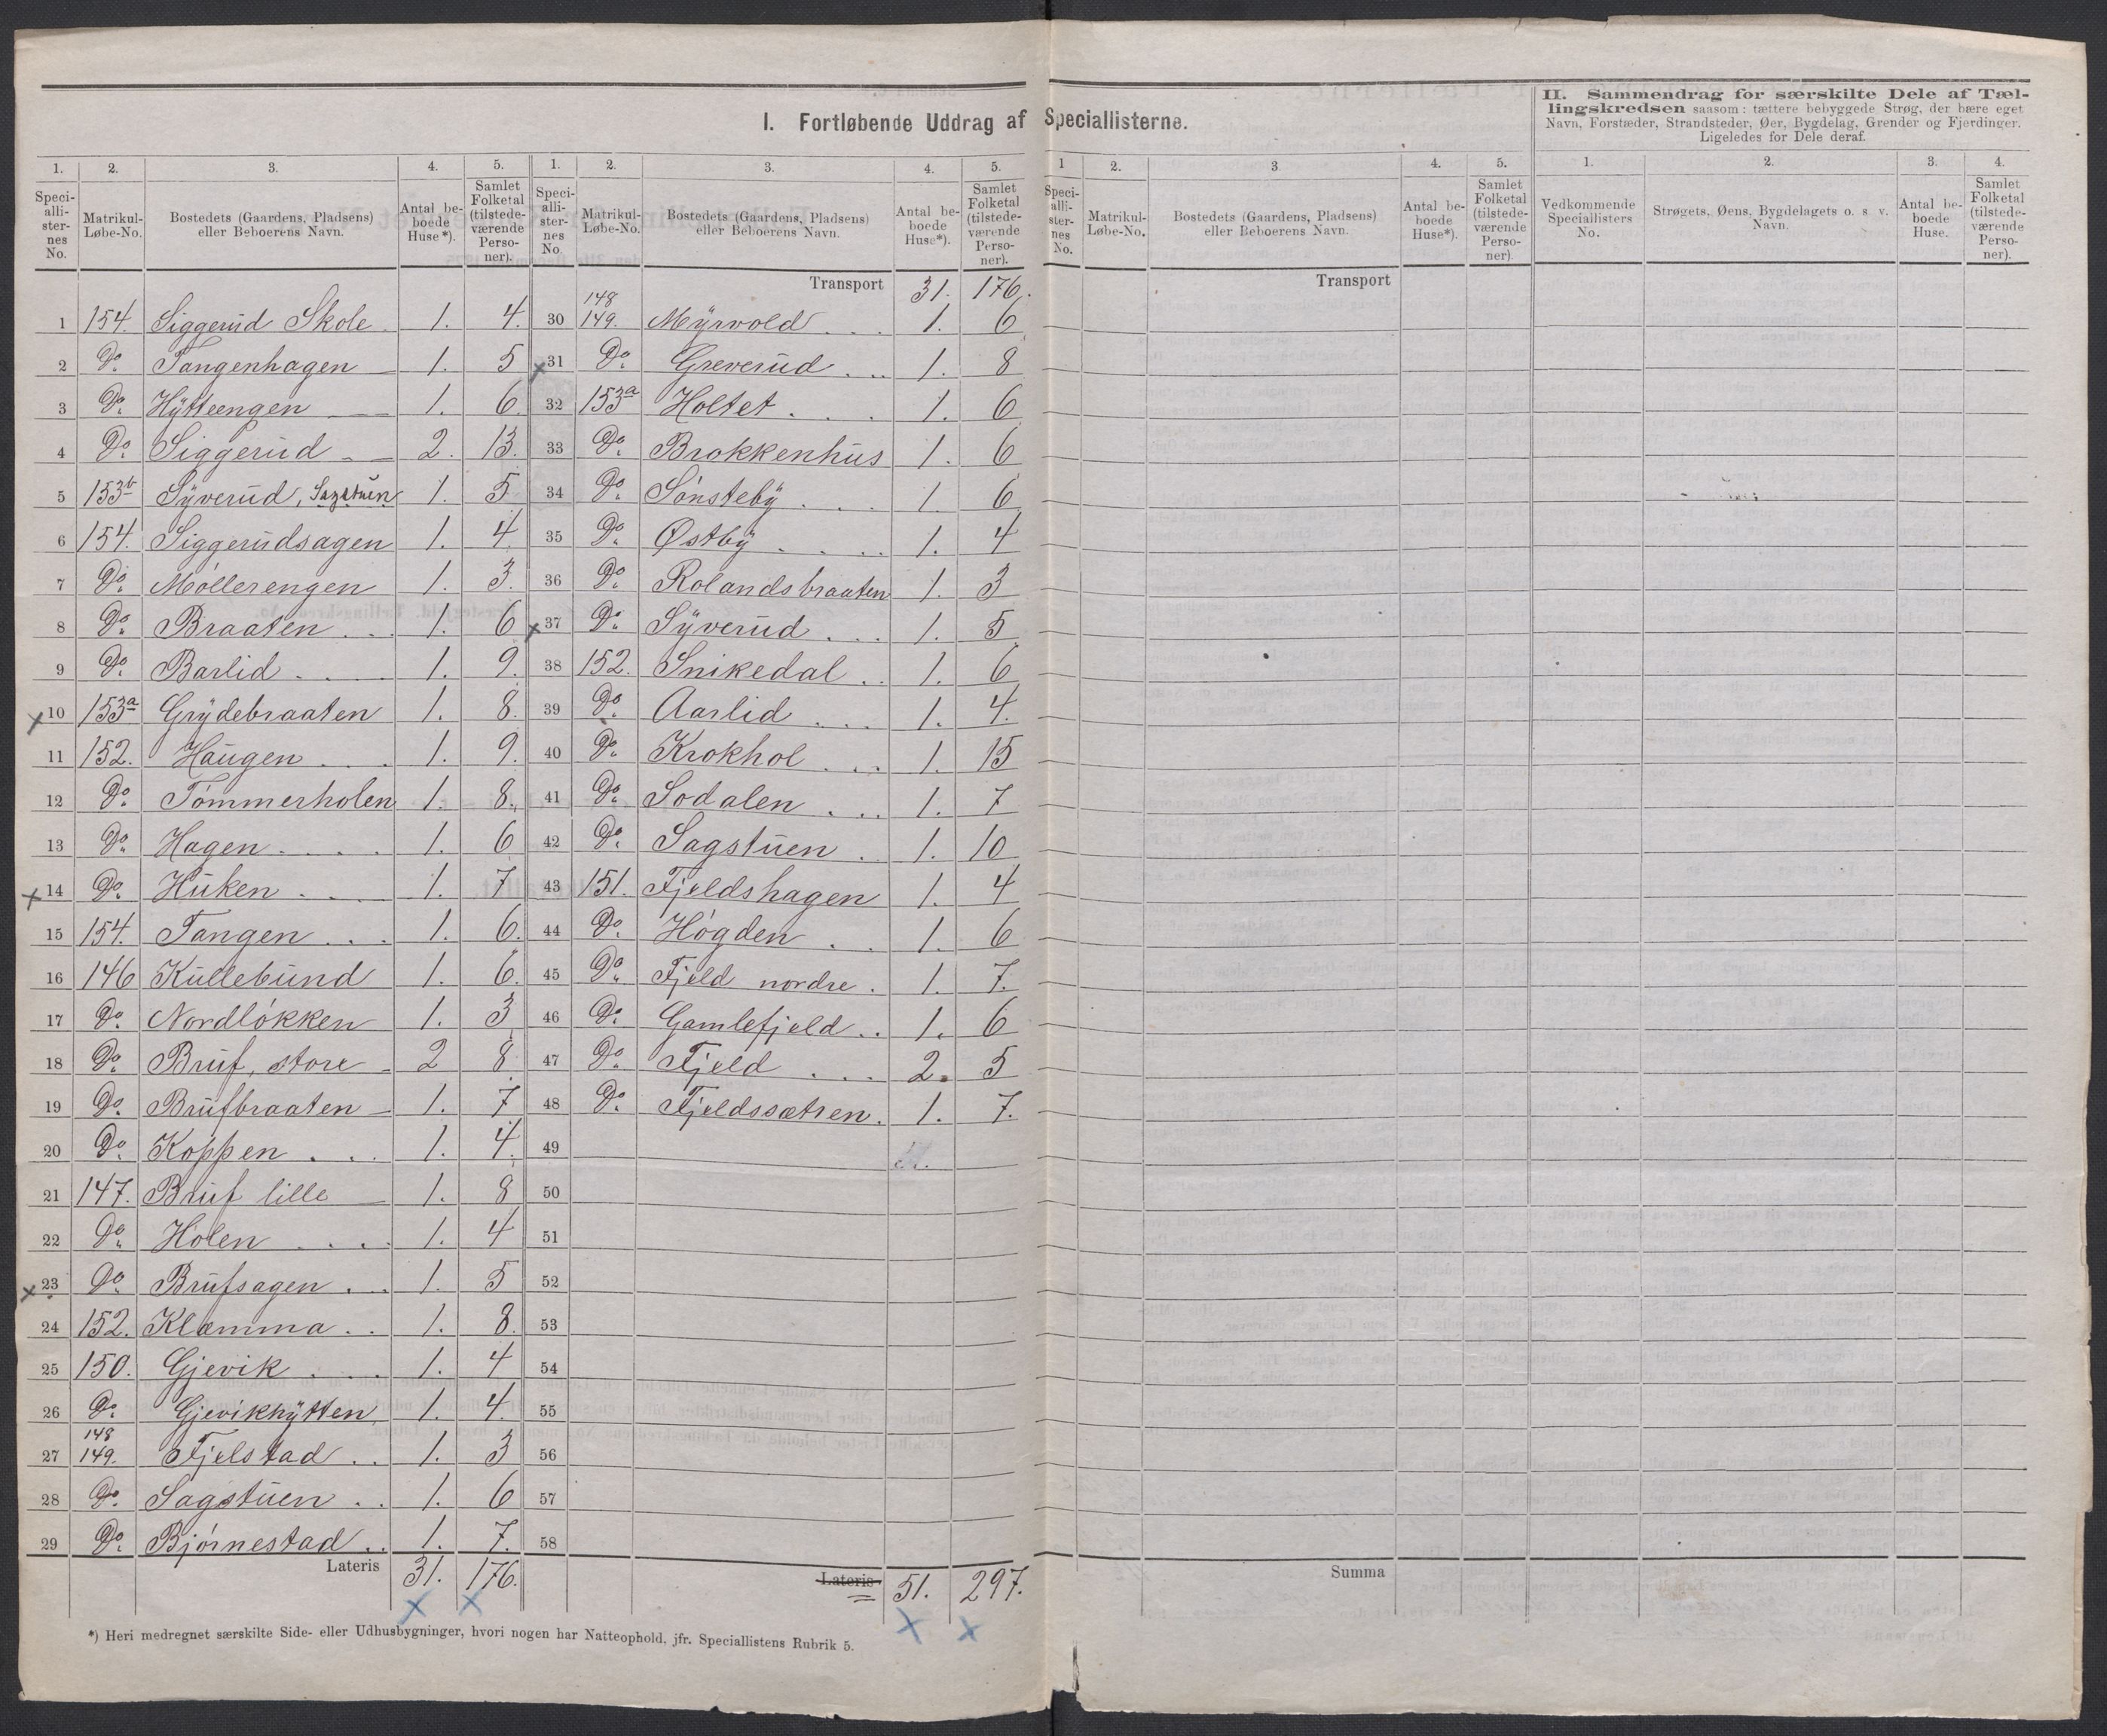 I. Fortløbende Uddrag af Speciallisterne.
1. 2. 3. 4. 5.
Speciallisternes No. Matrikul-Løbe-No. Bostedets (Gaardens, Pladsens) eller Beboerens Navn. Antal beboede Huse*). Samlet Folketal (tilstedeværende Personer).
1 154. Siggerud Skole 1. 4.
2 Do. Tangenhagen 1. 5
3 Do. Hÿtteengen 1. 6.
4 Do. Siggerud 2. 13.
5 153b Sÿverud, Sagstuen 1. 5
6 154. Siggerudsagen 1. 4.
7 Do. Möllerengen 1. 3.
8 Do. Braaten . . . 1. 6
9 Do. Barlid . . . 1. 9.
x 10 153a Grÿdebraaten 1. 8.
11 152. Haugen . . . 1. 9.
12 Do. Tömmerholen 1. 8.
13 Do. Hagen . . . . 1. 6
x 14 Do. Huken . . . 1. 7
15 154. Tangen . . . 1. 6.
16 146 Kullebund 1. 6.
17 Do. Nordlökken 1. 3
18 Do. Bruf, store 2 8
19 Do. Brufbraaten 1. 7
20 Do. Koppen . . . 1. 4.
21 147. Bruf lille 1. 8
22 Do. Holen . . . . 1. 4
x 23 Do. Brufsagen . . 1. 5
24 152. Klæmma . . 1. 8.
25 150. Gjevik . . . 1. 4
26 Do. Gjevikhÿtten 1. 4.
27 148 149. Fjelstad . . 1. 3
28 Do. Sagstuen . . 1. 6
29 Do. Björnestad . . 1. 7.
Lateris 31. 176.
x x
1. 2. 3. 4. 5.
Speciallisternes No. Matrikul-Løbe-No. Bostedets (Gaardens, Pladsens) eller Beboerens Navn. Antal beboede Huse*). Samlet Folketal (tilstedeværende Personer).
Transport 31. 176.
30 148 149. Mÿrvold . . . 1. 6
x 31 Do. Greverud . . . 1. 8
32 153a Holtet . . . 1. 6
33 Do. Brokkenhus 1. 6
34 Do. Sönstebÿ . . . 1. 6
35 Do. Østbÿ . . . . 1. 4
36 Do. Rolandsbraaten 1. 3
x 37 Do. Sÿverud . . . 1. 5
38 152. Snikedal . . 1. 6
39 Do. Aarlid . . . 1. 4.
40 Do. Krokhol . . . 1. 15
41 Do. Sodalen . . . 1. 7
42 Do. Sagstuen . . 1. 10
43 151. Fjeldshagen 1. 4
44 Do. Högden . . 1. 6
45 Do. Fjeld nordre . 1. 7.
46 Do. Gamlefjeld . . 1. 6
47 Do. Fjeld . . . 2. 5
48 Do. Fjeldssætren . 1. 7.
49
50
51
52
53
54
55
56
57
58
Lateris 51. 297.
x x
*) Heri medregnet særskilte Side- eller Udhusbygninger, hvori nogen har Natteophold, jfr. Speciallistens Rubrik 5.
1 2. 3 4. 5.
Speciallisternes No. Matrikul-Løbe-No. Bostedets (Gaardens, Pladsens) eller Beboerens Navn. Antal beboede Huse*). Samlet Folketal (tilstedeværende Personer).
Transport
Summa
II. Sammendrag for særskilte Dele af Tæl-
lingskredsen saasom: tættere bebyggede Strøg, der bære eget
Navn, Forstæder, Strandsteder, Øer, Bygdelag, Grender og Fjerdinger.
Ligeledes for Dele deraf.
1. 2. 3. 4.
Vedkommende Speciallisters No. Strøgets, Øens, Bygdelagets o. s. v. Navn. Antal beboede Huse. Samlet Folketal (tilstedeværende Personer).